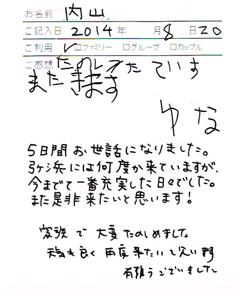 お名前 内山
ご記入日 2014年 8日20
ご利用 ☑ファミリー □グループ □カップル
ご感想 たのしかたです
またきます
ゆな
5日間お世話になりました。
弓ヶ浜には何度か来ていますが、
今までで一番充実した日々でした。
また是非来たいと思います!
家族で大変たのしめました。
天気も良く 再度来たいと思い
有難うございました